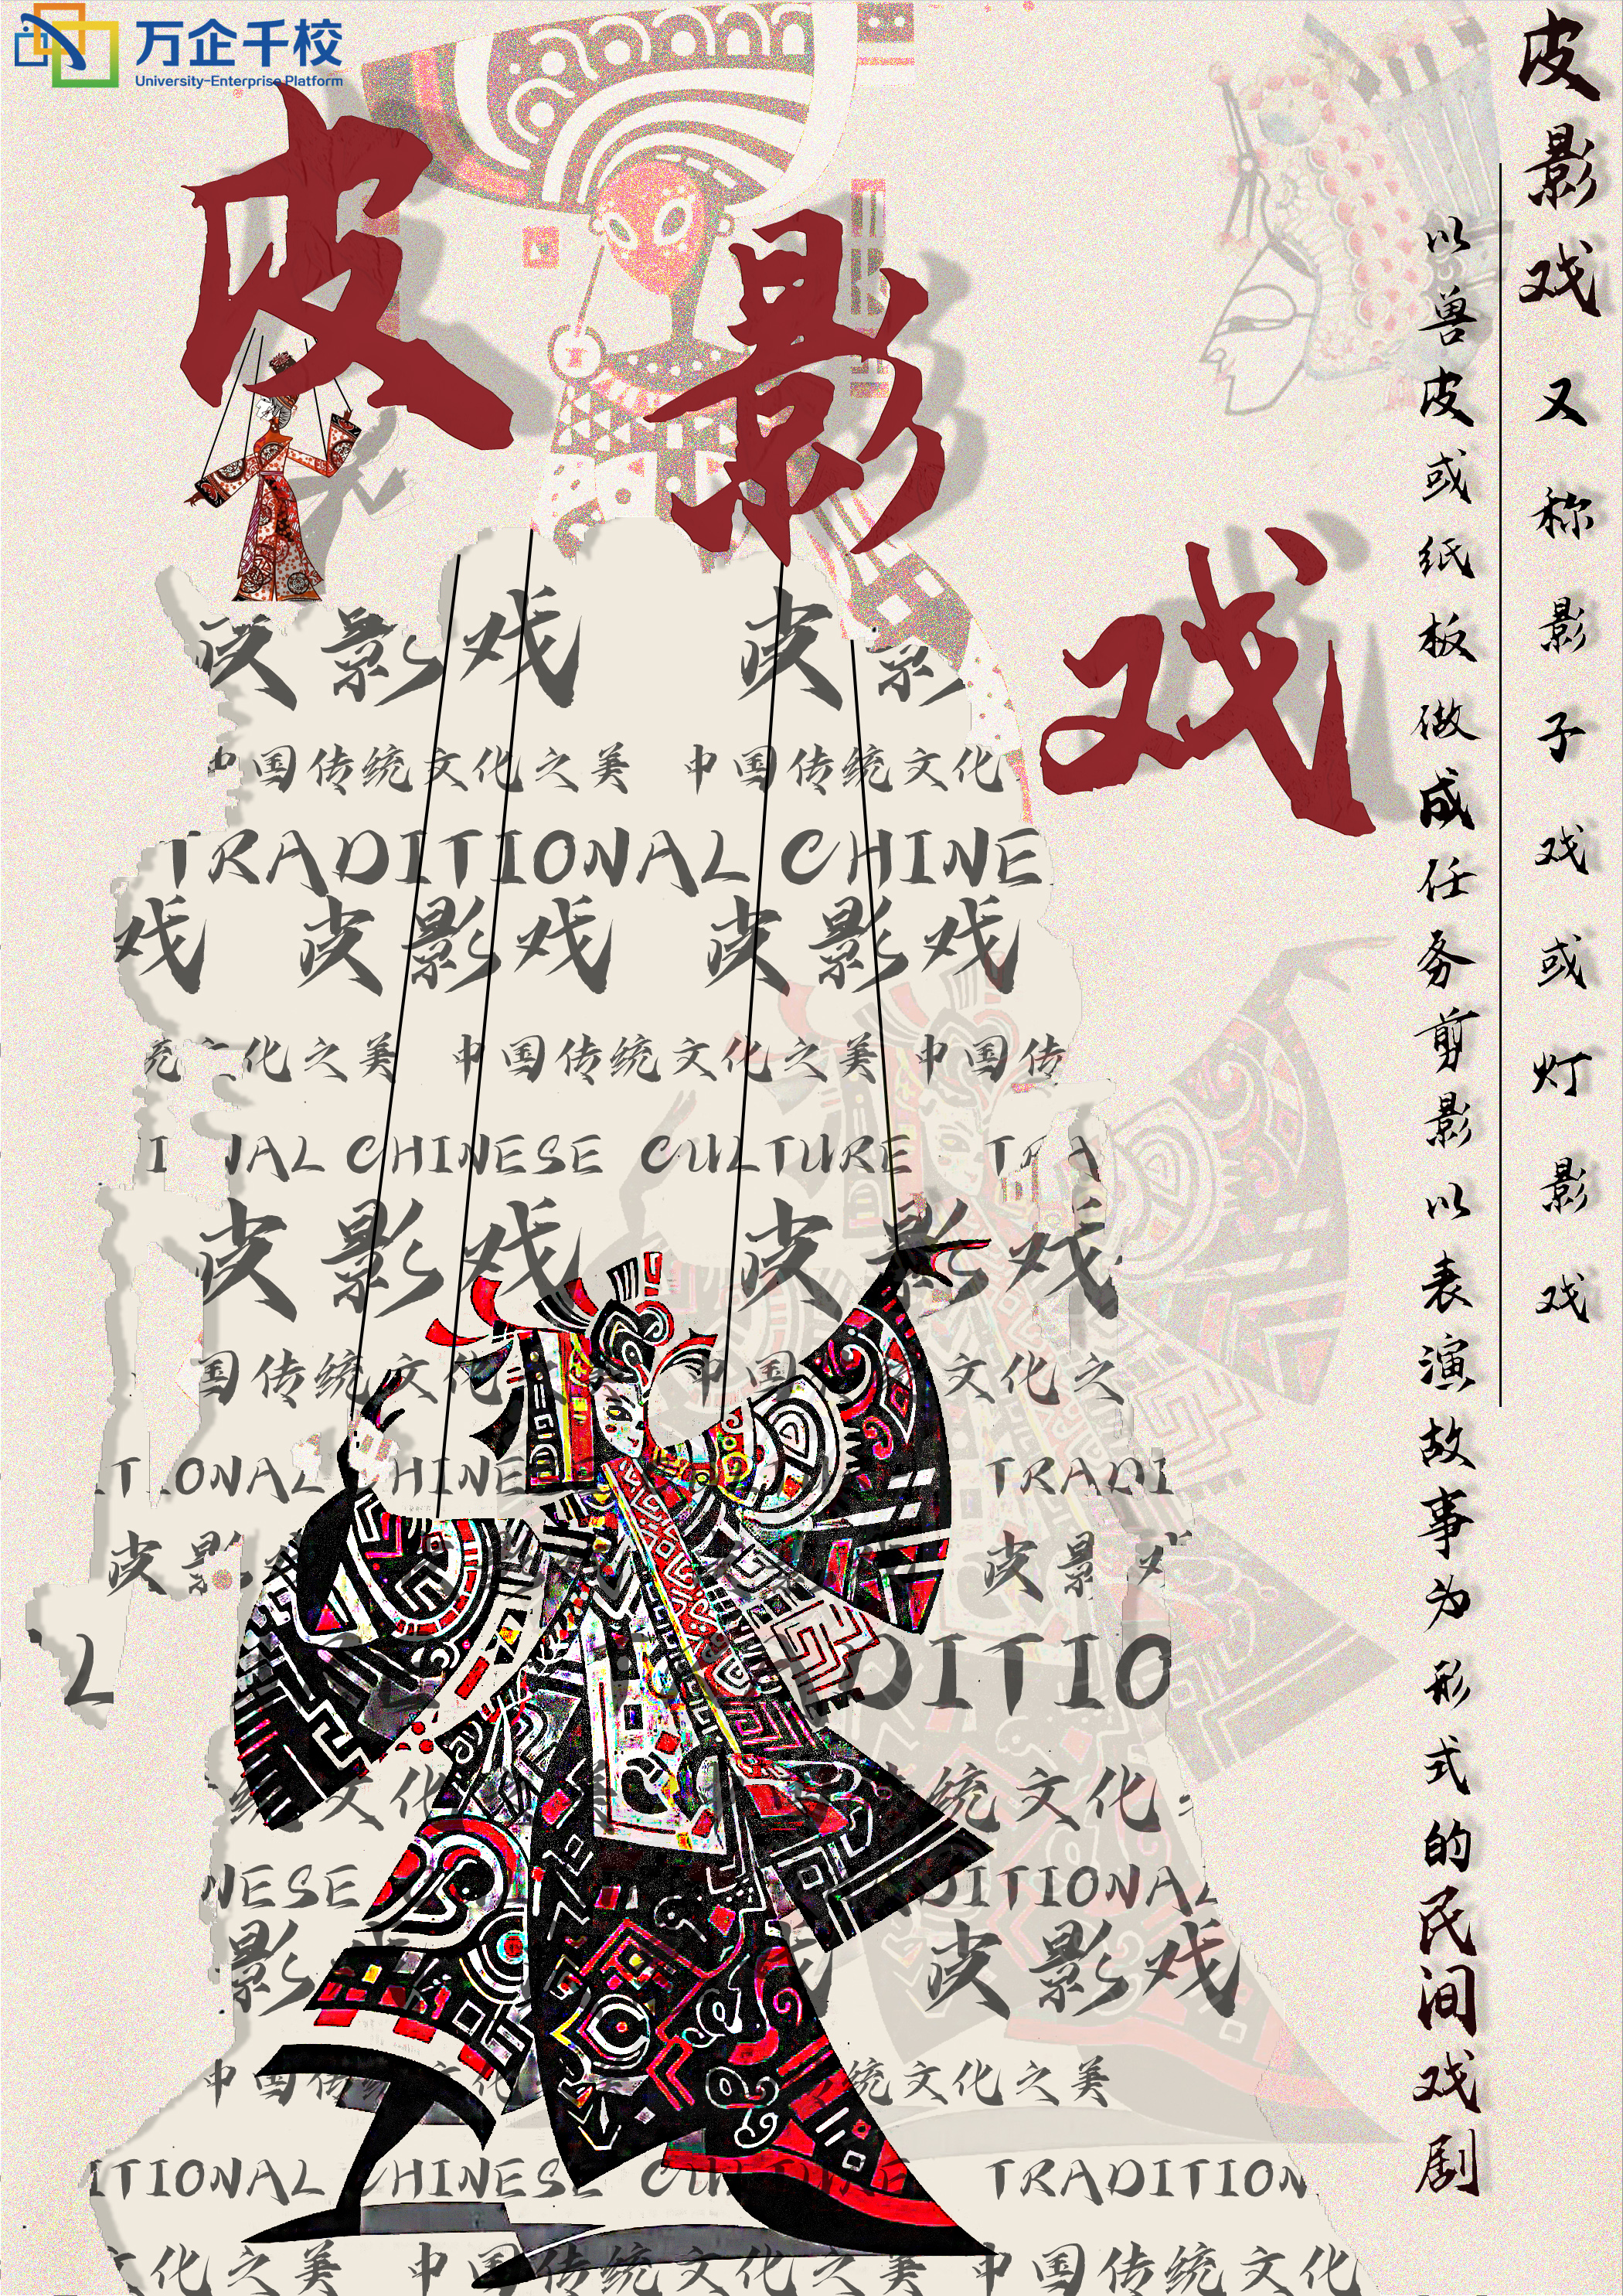 万企千校
University-Enterprise Platform
皮影戏
皮影戏又称影子戏或灯影戏
以兽皮或纸板做成任务剪影以表演故事为形式的民间戏剧
皮影戏 皮影
中国传统文化之美 中国传统文化
TRADITIONAL CHINE
戏 皮影戏 皮影戏
统文化之美 中国传统文化之美 中国传
NAL CHINESE CULTURE TRA
皮影戏 皮影戏
国传统文化 中国 文化之
TIONAL CHINE TRADI
皮影 皮影
L DITIO
文化 传统文化
NESE DITIONAL
影 皮影戏
中国传 统文化之美
ITIONAL CHINESE CULTURE TRADITION
文化之美 中国传统文化之美 中国传统文化